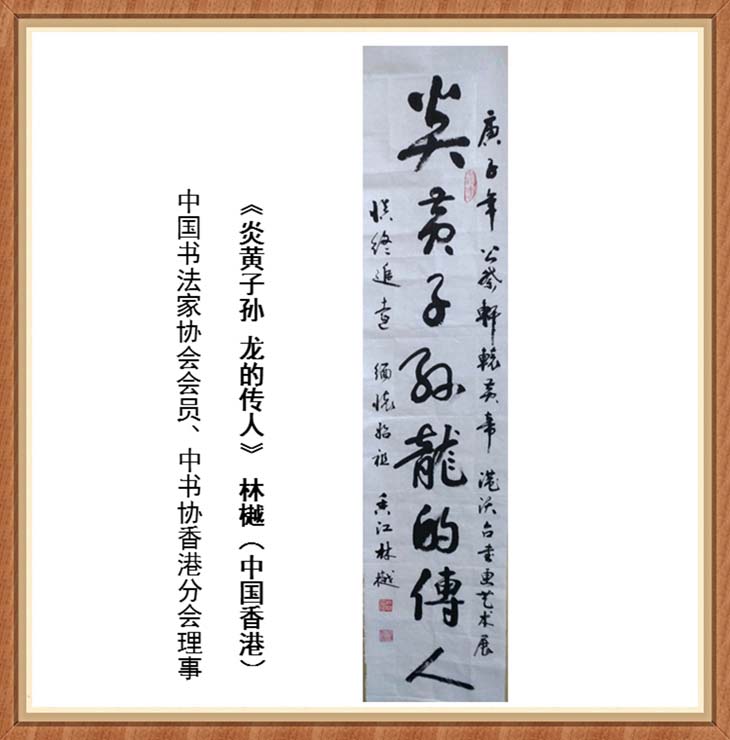 庚子年公祭軒轅黄帝港沃台書画艺术展
炎黄子孙龍的傳人
慎终追遠 缅懷始祖 香江林樾
《炎黄子孙 龙的传人》 林樾（中国香港）
中国书法家协会会员、中书协香港分会理事